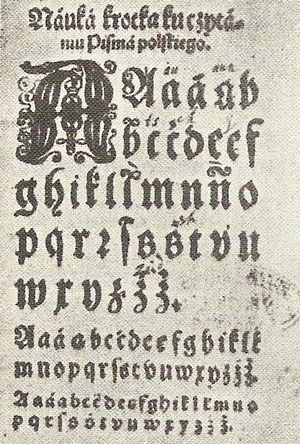 Náuká krotka ku czytá-
niu Pismá polskiego.
A A a á ą b
b́ c ć d e é ę f
g h i k l ł m ḿ n ń o
p q r ꝛ ſ s ś t v u
w x y z ź ż.
A a á ą b c ć d e ę f g h i k l ł
m n o p q r ſ s t v u w x y z ź ż.
A a á ą b c ć d e ę f g h i k l ł m n o
p q r ſ s ś t v u w x y z ź ż.